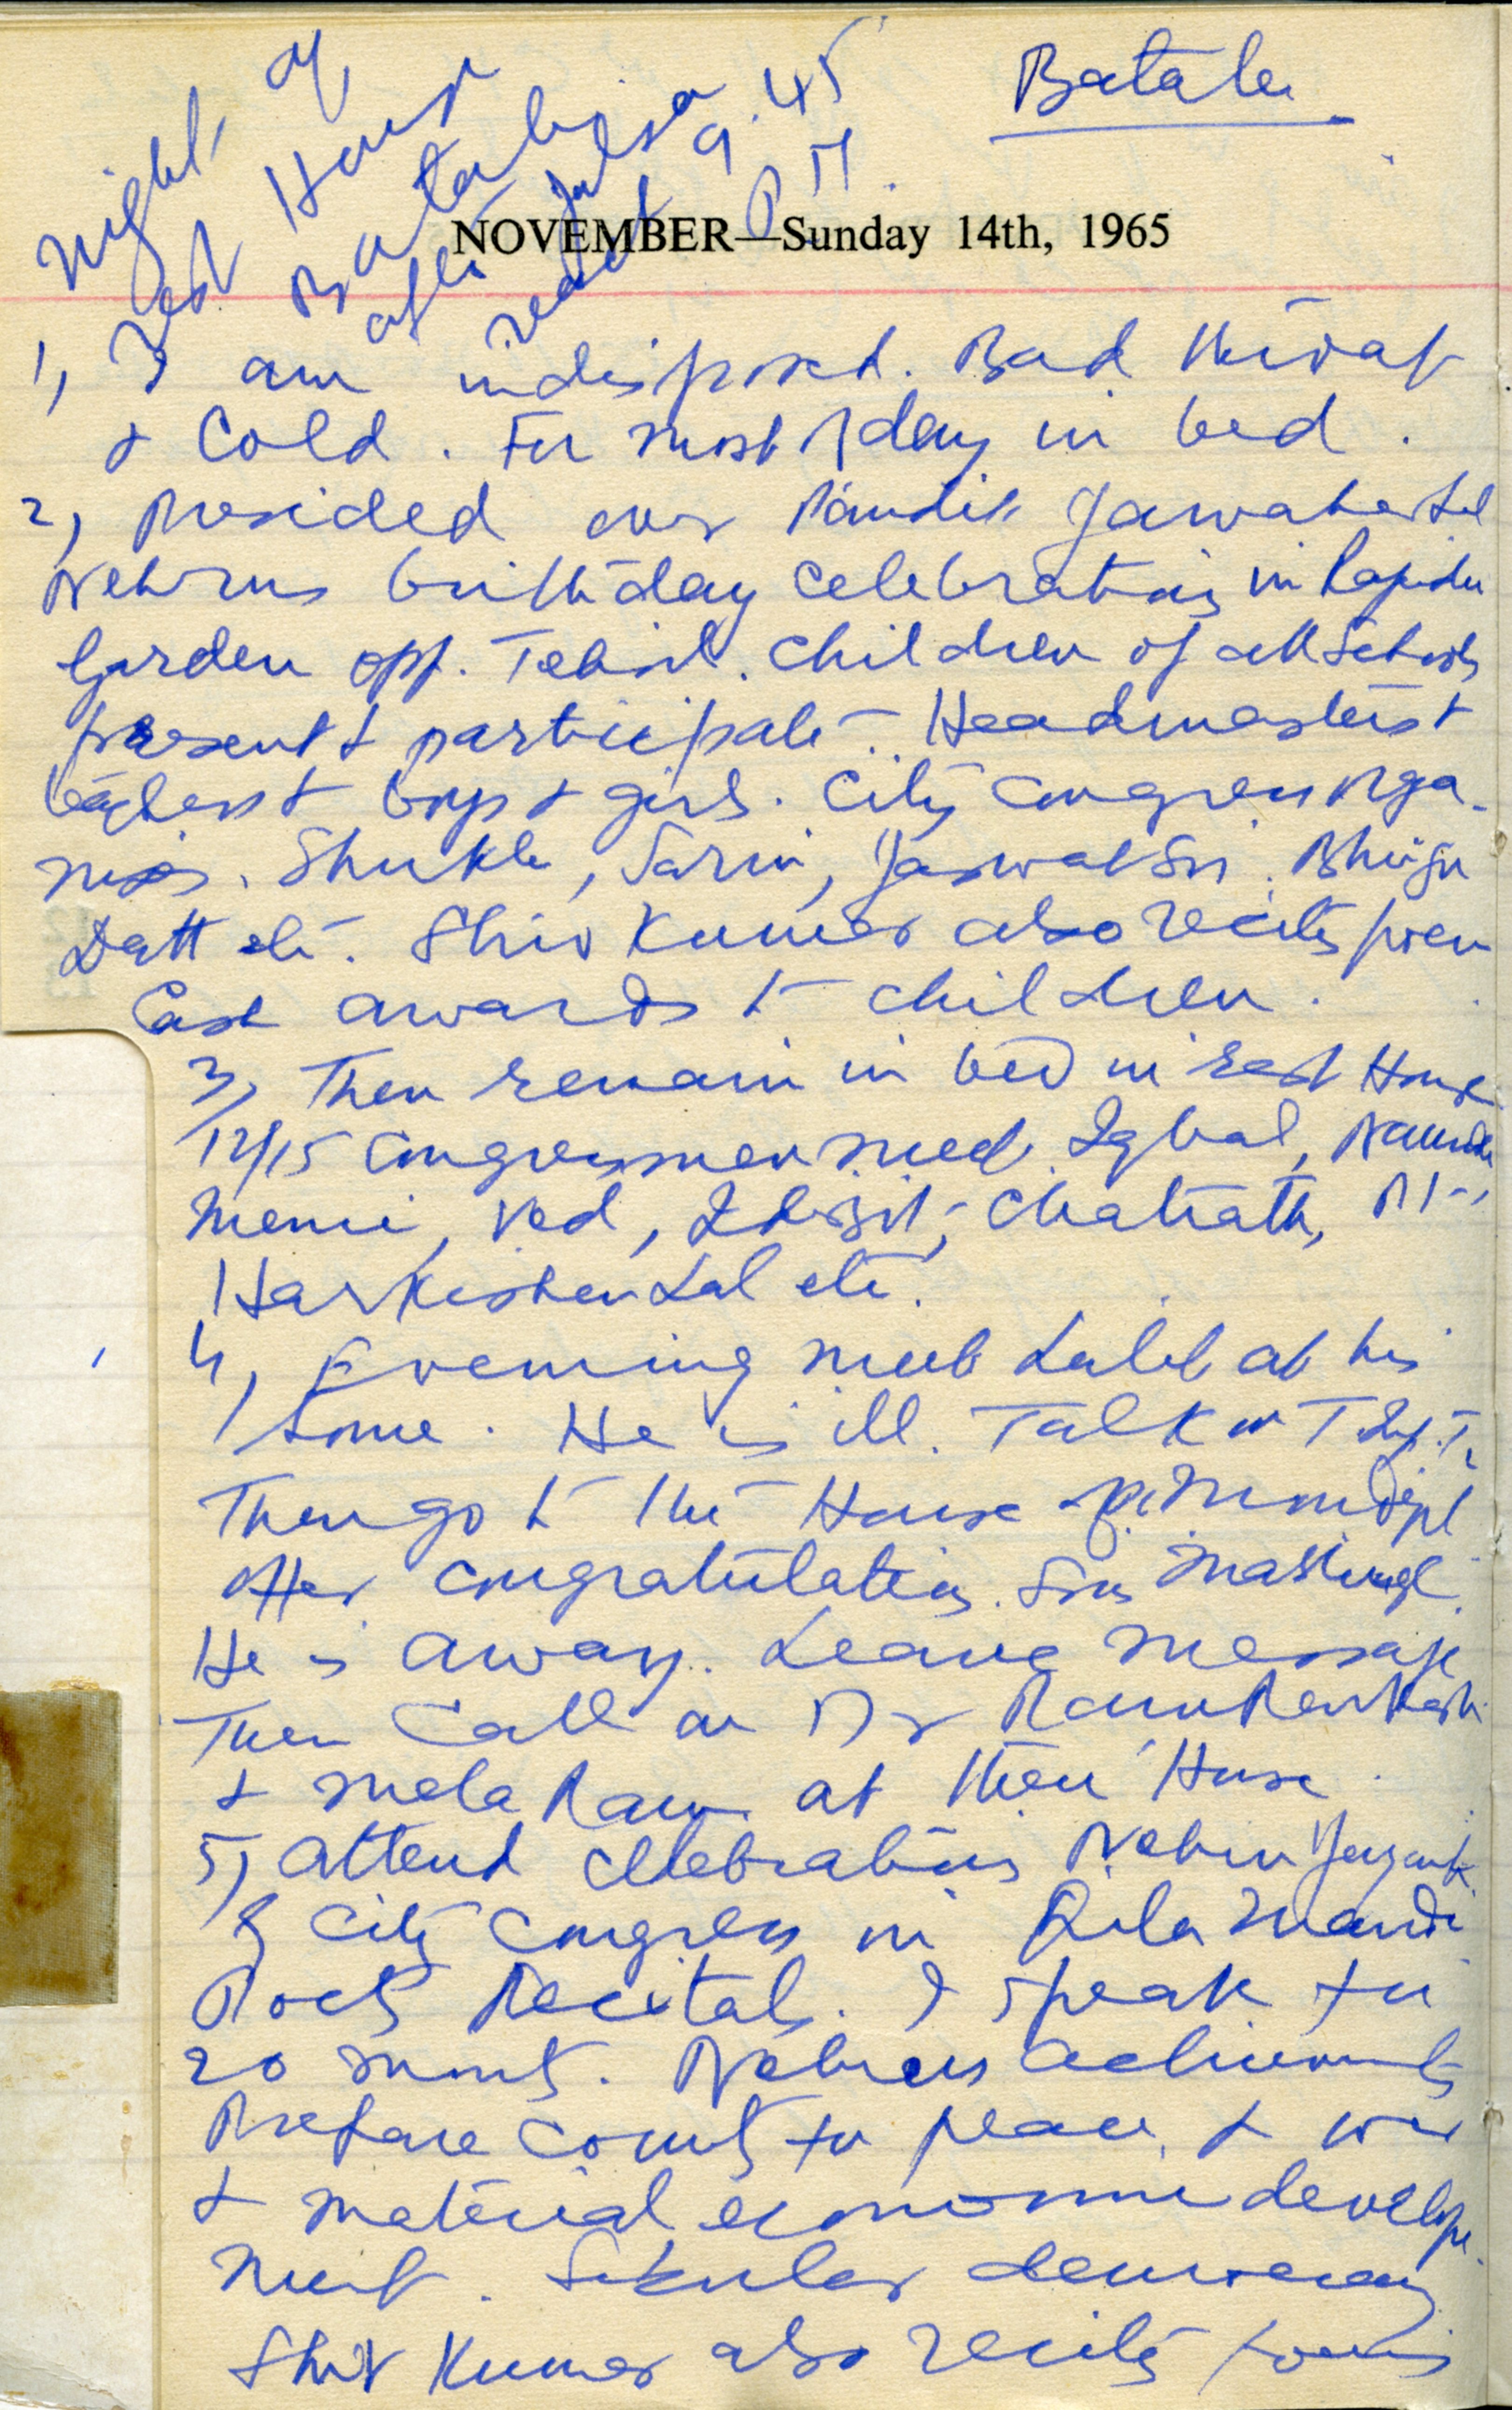 Batala
Night of
Rest House
Batala
after Julsa
9.45
P.M.
NOVEMBER—Sunday 14th, 1965
1, I am indisposed. Bad throat
& Cold. For most of day in bed.
2, Presided over Pandit Jawaharlal
Nehrus birthday celebrations in
Garden opp. Tehsil. Children of all Schools
present & participate. Headmasters &
teachers & boys & girls. City Congress orga-
nises. Shukla, Sarin, Jaswal Sri
Datt etc. Shiv Kumar also recites poem
Cash awards to children.
3, Then remain in bed in Rest House
12/15 Congressmen meet. Iqbal,
Ved, Chatrath,
Harkishen Lal etc.
4, Evening meet Lalit at his
home. He is ill. Talk on
Then go to the House of
offer congratulations. Sons
He is away. Leave message
Then call on Dr Ram
& Mela Ram at their House.
5, Attend celebrations Nehru
of City Congress in Qila Mandi
Poets Recitals. I speak for
20 minuts. Nehrus achievements
Prepare County for peace & war
& material economic develop-
ment. Sekular democracy
Shiv Kumar also recites poems